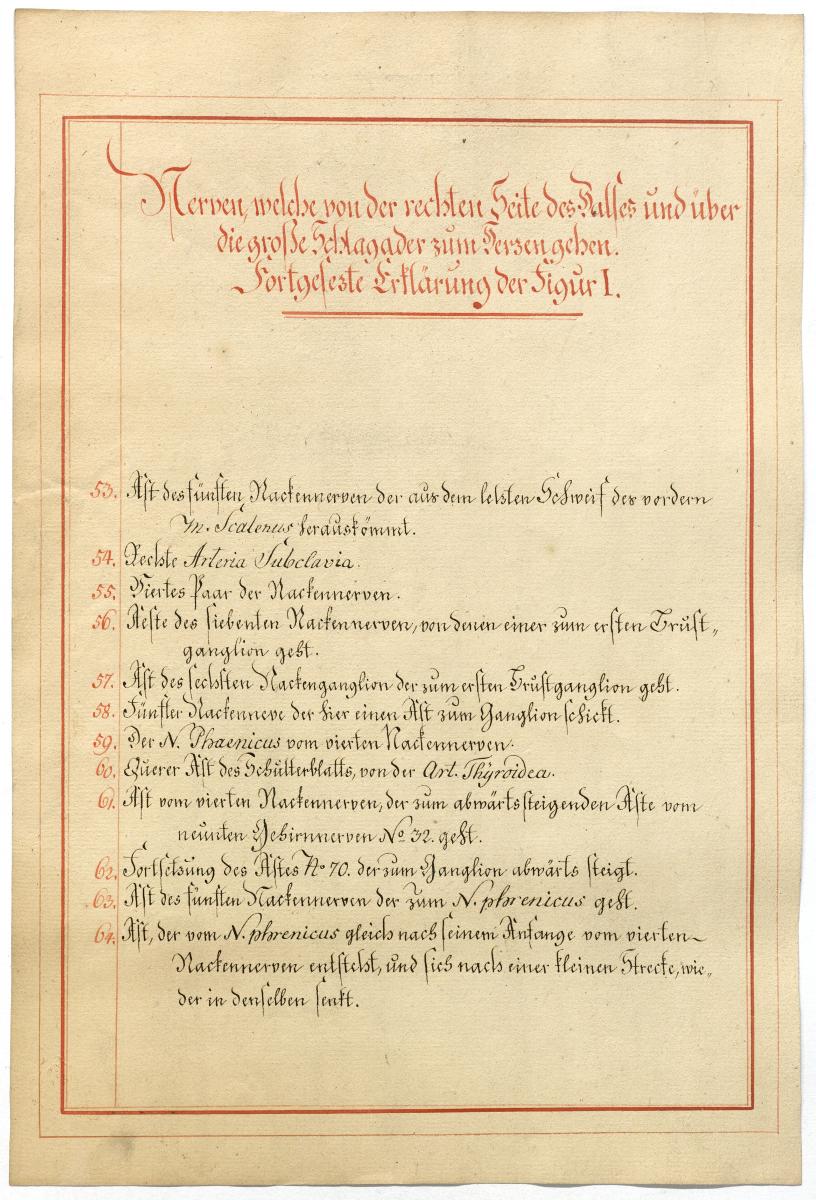 Nerven, welche von der rechten Seite des Halses und über
die große Schlagader zum Herzen gehen.
Fortgesezte Erklärung der Figur I.
53. Ast des fünften Nackennerven der aus dem letsten Schweif des vordern
m. Scalenus herauskömmt.
54. Rechte Arteria Subclavia.
55. Viertes Paar der Nackennerven.
56. Aeste des siebenten Nackennerven, von denen einer zum ersten Brust„
ganglion geht.
57. Ast des sechsten Nackenganglion der zum ersten Brustganglion geht.
58. Fünfter Nackenneve der hier einen Ast zum Ganglion schickt.
59. Der N. Phaenicus vom vierten Nackennerven.
60. Querer Ast des Schulterblatts, von der Art. Thÿroidea.
61. Ast vom vierten Nackennerven, der zum abwärtssteigenden Aste vom
neunten Gehirnnerven No 32. geht.
62. Fortsetzung des Astes No 70. der zum Ganglion abwärts steigt.
63. Ast des fünften Nackennerven der zum N. phrenicus geht.
64. Ast, der vom N. phrenicus gleich nach seinem Anfange vom vierten
Nackennerven entsteht, und sich nach einer kleinen Strecke, wie„
der in denselben senkt.